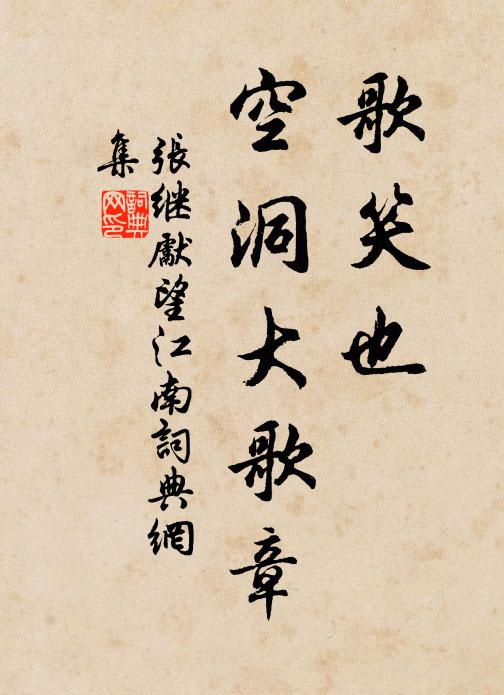 歌笑也
空洞大歌章
張继獻望江南詞典網
集
詞典
网印